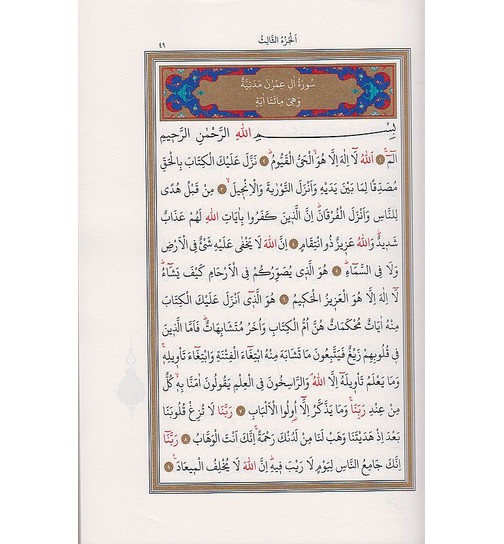 اَلْجُزْءُ الثَّالِثُ
٤٩
سُورَةُ اٰلِ عِمْرٰنَ مَدَنِيَّةٌ
وَهِىَ مِائَتَا اٰيَةٍ
بِسْــــــمِ اللّٰهِ الرَّحْمٰنِ الرَّحٖيمِ
الٓمٓ ١ اَللّٰهُ لَٓا اِلٰهَ اِلَّا هُوَۙ الْحَىُّ الْقَيُّومُؕ ٢ نَزَّلَ عَلَيْكَ الْكِتَابَ بِالْحَقِّ
مُصَدِّقًا لِمَا بَيْنَ يَدَيْهِ وَاَنْزَلَ التَّوْرٰيةَ وَالْاِنْجٖيلَۙ ٣ مِنْ قَبْلُ هُدًى
لِلنَّاسِ وَاَنْزَلَ الْفُرْقَانَؕ اِنَّ الَّذٖينَ كَفَرُوا بِاٰيَاتِ اللّٰهِ لَهُمْ عَذَابٌ
شَدٖيدٌؕ وَاللّٰهُ عَزٖيزٌ ذُو انْتِقَامٍ ٤ اِنَّ اللّٰهَ لَا يَخْفٰى عَلَيْهِ شَىْءٌ فِى الْاَرْضِ
وَلَا فِى السَّمَٓاءِؕ ٥ هُوَ الَّذٖى يُصَوِّرُكُمْ فِى الْاَرْحَامِ كَيْفَ يَشَٓاءُؕ
لَٓا اِلٰهَ اِلَّا هُوَ الْعَزٖيزُ الْحَكٖيمُ ٦ هُوَ الَّذٖٓى اَنْزَلَ عَلَيْكَ الْكِتَابَ
مِنْهُ اٰيَاتٌ مُحْكَمَاتٌ هُنَّ اُمُّ الْكِتَابِ وَاُخَرُ مُتَشَابِهَاتٌؕ فَاَمَّا الَّذٖينَ
فٖى قُلُوبِهِمْ زَيْغٌ فَيَتَّبِعُونَ مَا تَشَابَهَ مِنْهُ ابْتِغَٓاءَ الْفِتْنَةِ وَابْتِغَٓاءَ تَاْوٖيلِهٖۚ
وَمَا يَعْلَمُ تَاْوٖيلَهُٓ اِلَّا اللّٰهُۘ وَالرَّاسِخُونَ فِى الْعِلْمِ يَقُولُونَ اٰمَنَّا بِهٖۙ كُلٌّ
مِنْ عِنْدِ رَبِّنَاۚ وَمَا يَذَّكَّرُ اِلَّٓا اُولُوا الْاَلْبَابِ ٧ رَبَّنَا لَا تُزِغْ قُلُوبَنَا
بَعْدَ اِذْ هَدَيْتَنَا وَهَبْ لَنَا مِنْ لَدُنْكَ رَحْمَةًۚ اِنَّكَ اَنْتَ الْوَهَّابُ ٨ رَبَّنَٓا
اِنَّكَ جَامِعُ النَّاسِ لِيَوْمٍ لَا رَيْبَ فٖيهِؕ اِنَّ اللّٰهَ لَا يُخْلِفُ الْمٖيعَادَ۟ ٩